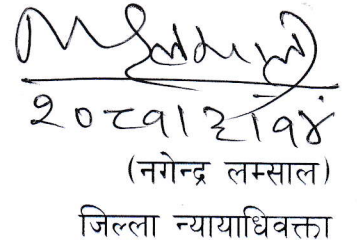 २०८१।३।१४
(नगेन्द्र लम्साल)
जिल्ला न्यायाधिवक्ता